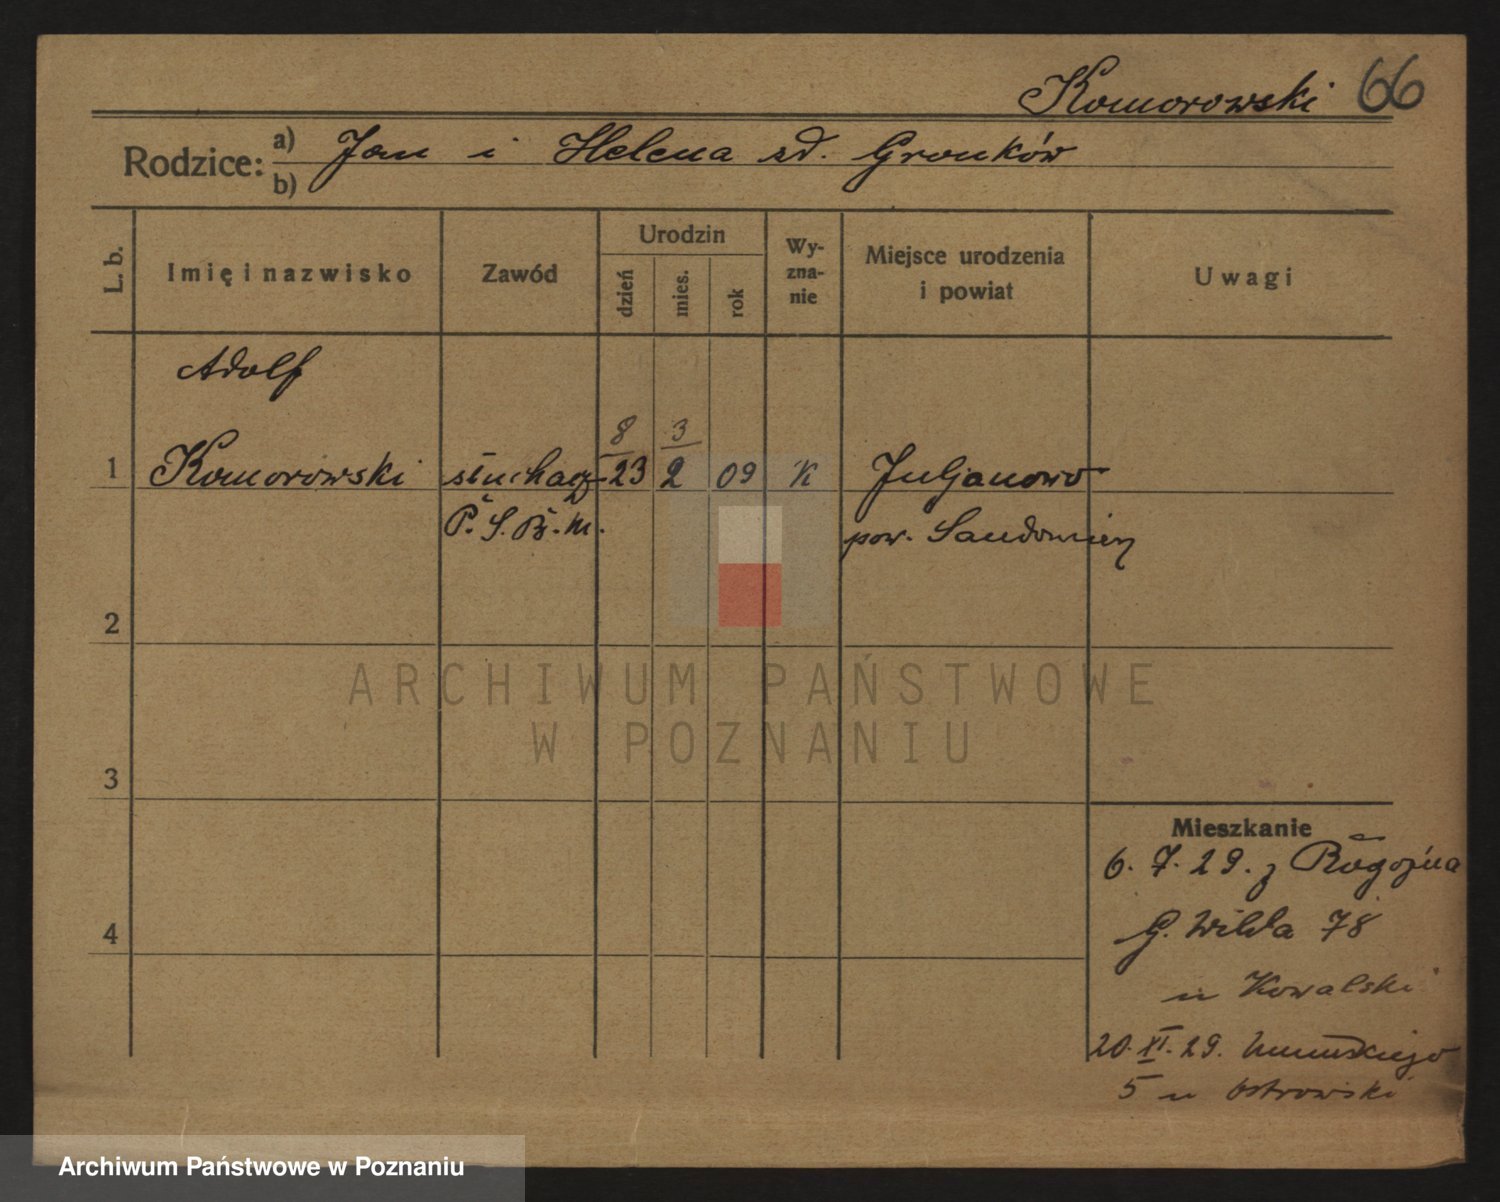 Komorowski 66
Rodzice: a) Jan i Helena zd. Gronków
b)
L. b.
Imię i nazwisko
Zawód
Urodzin
dzień
mies.
rok
Wy-
zna-
nie
Miejsce urodzenia
i powiat
Uwagi
Adolf
8 3
1 Komorowski słuchacz 23 2 09 K Juljanowo
P. S. B. M. pow. Sandomierz
2
ARCHIWUM PAŃSTWOWE
W POZNANIU
3
Mieszkanie
6. 7. 29. z Rogoźna
4
G. Wilda 78
u Kowalski
20. XI. 29.
5 u Ostrowski
Archiwum Państwowe w Poznaniu